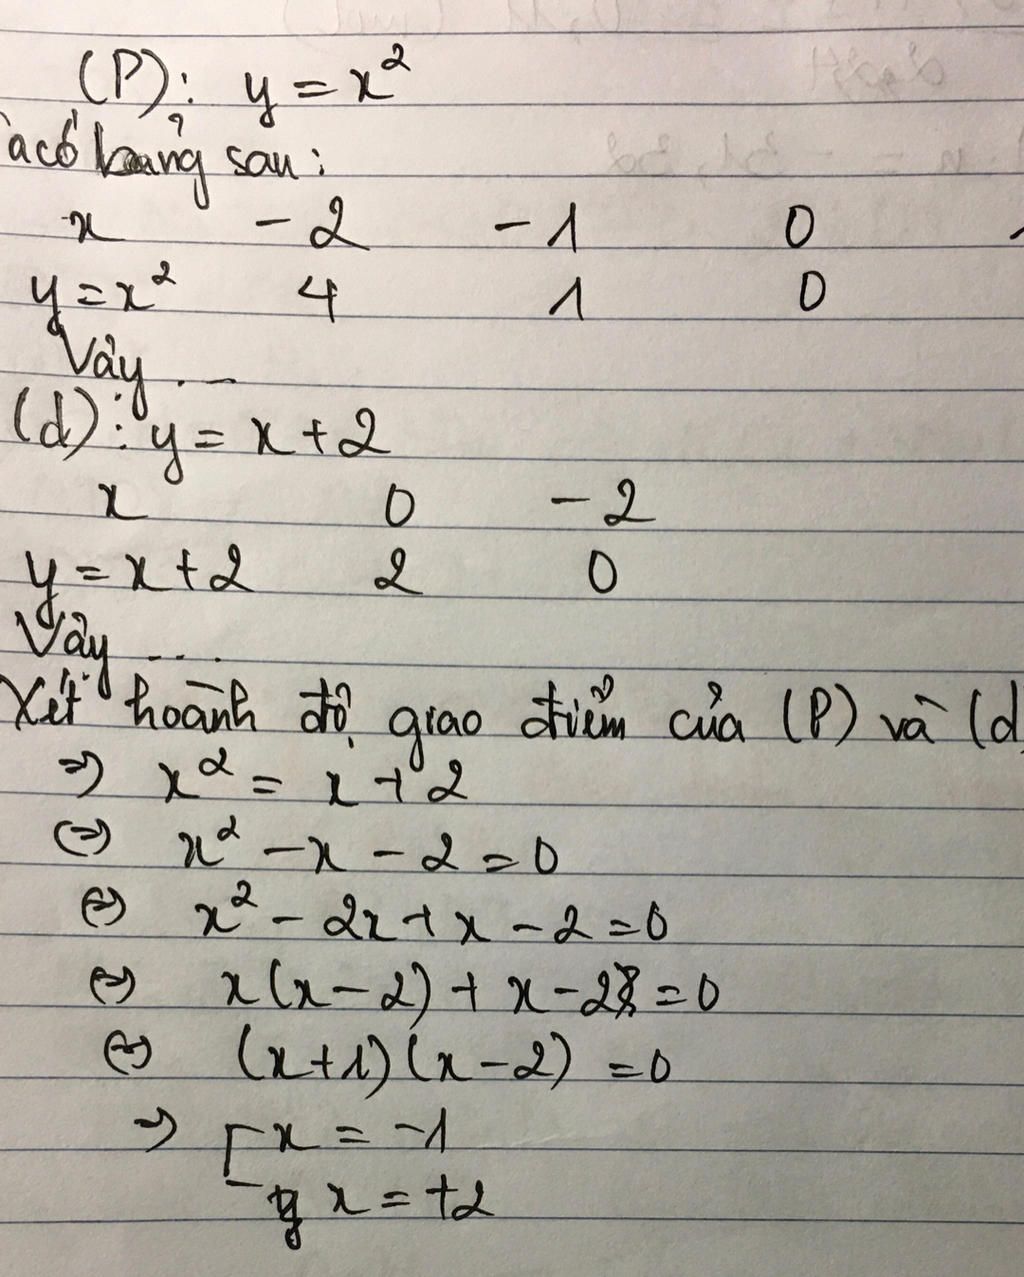 (P): y = x²
a có bảng sau:
x -2 -1 0
y = x² 4 1 0
Vậy ...
(d): y = x + 2
x 0 -2
y = x + 2 2 0
Vậy ....
Xét hoành độ giao điểm của (P) và (d
=> x² = x + 2
(=) x² - x - 2 = 0
(=) x² - 2x + x - 2 = 0
(=) x(x - 2) + x - 2 = 0
(=) (x + 1)(x - 2) = 0
=> [ x = -1
x = +2